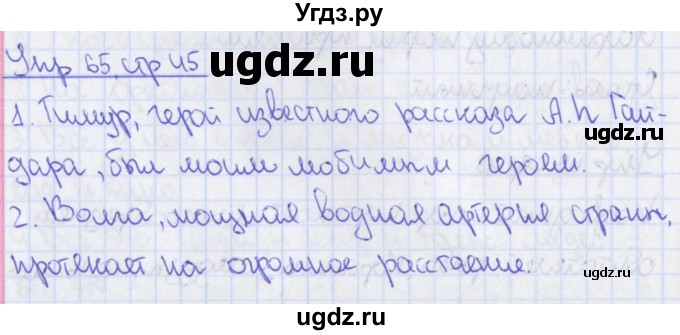 Угдз.ру
Упр 65. стр 45
ugdz.ru
1. Тимур, герой известного рассказа А.П Гай-
дара, был моим любимым героем.
2. Волга, мощная водная артерия страны,
протекает на огромное расстаение.
ugdz.ru
ugdz.ru
ugdz.ru
ugdz.ru
Угдз.ру